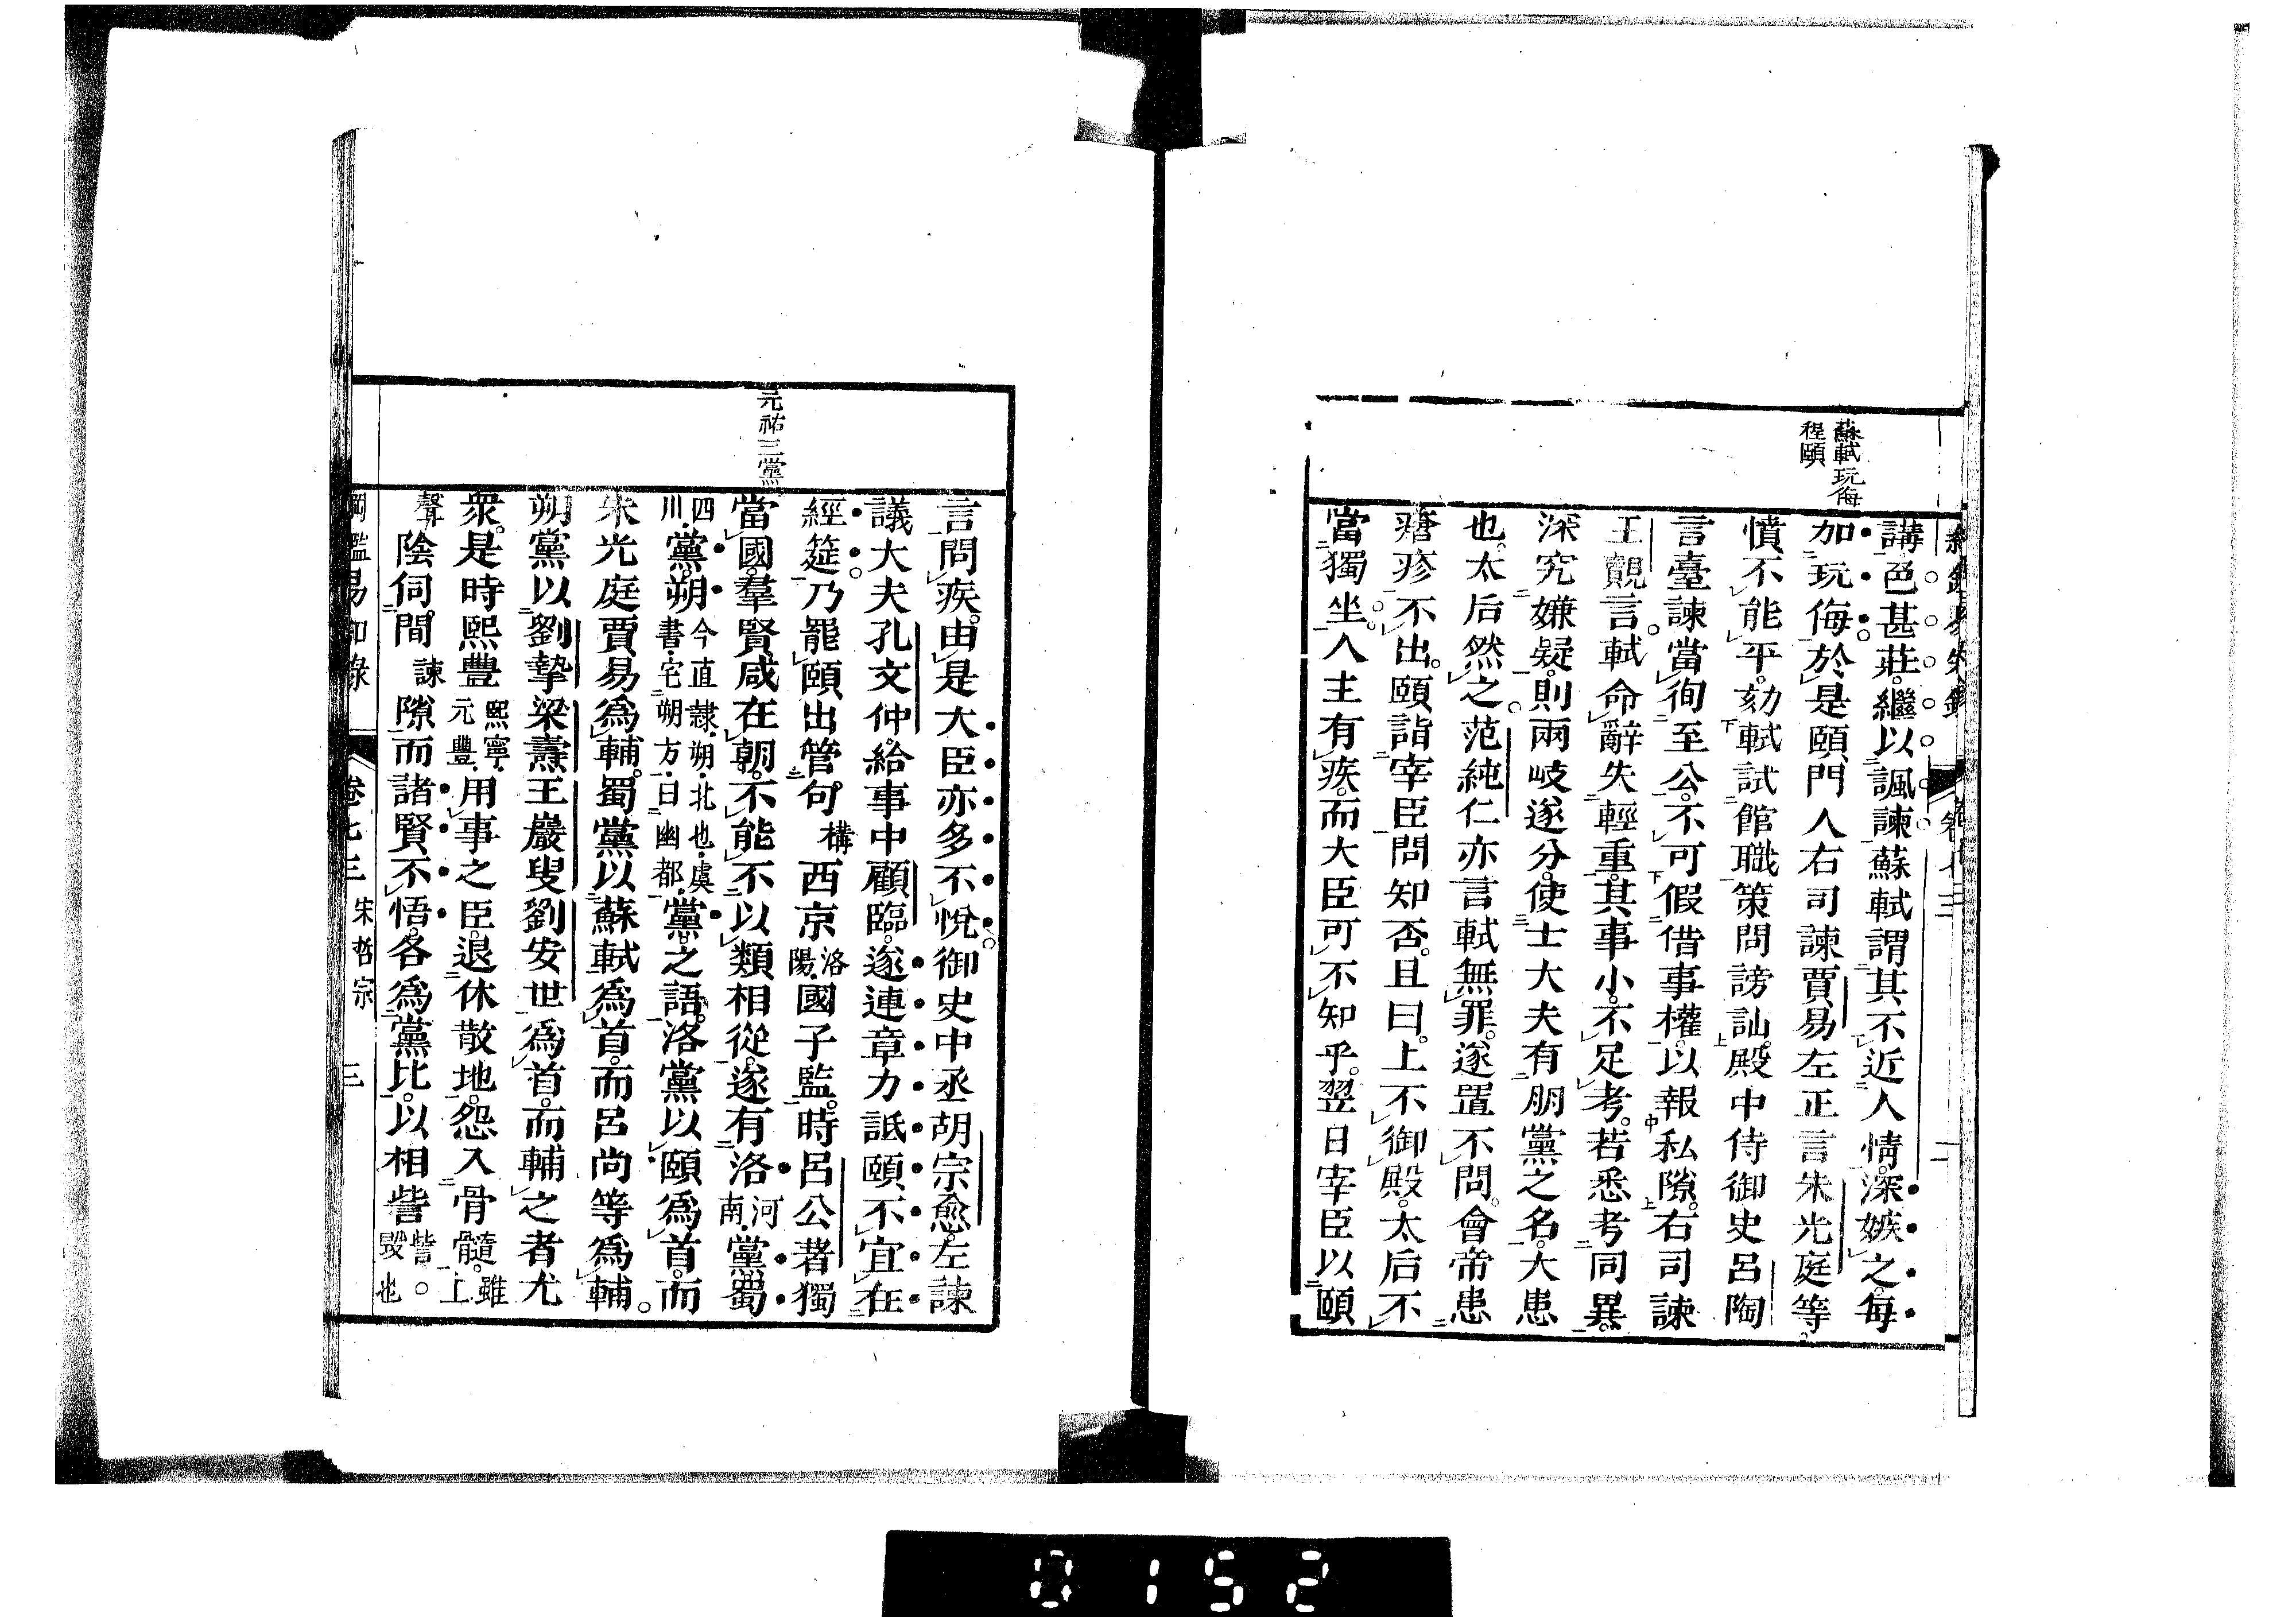 蘇軾玩侮
程頤
講。色甚莊。繼以諷諫。蘇軾謂其不近人情。深嫉之。每
加玩侮。於是頤門人右司諫賈易左正言朱光庭等。
憤不能平。劾軾試館職策問謗訕。殿中侍御史呂陶
言臺諫當徇至公。不可假借事權。以報私隙。右司諫
王覿言。軾命辭失輕重。其事小。不足考。若悉考同異。
深究嫌疑。則兩岐遂分。使士大夫有朋黨之名。大患
也。太后然之。范純仁亦言軾無罪。遂置不問。會帝患
瘡疹不出。頤詣宰臣問知否。且曰。上不御殿。太后不
當獨坐。人主有疾。而大臣可不知乎。翌日宰臣以頤
元祐三黨
言問疾。由是大臣亦多不悅。御史中丞胡宗愈。左諫
議大夫孔文仲。給事中顧臨。遂連章力詆頤不宜在
經筵。乃罷頤出管句構西京洛陽國子監。時呂公著獨
當國。羣賢咸在朝。不能不以類相從。遂有洛河南黨蜀
四川黨。朔今直隸朔北也虞書宅朔方曰幽都黨之語。洛黨以頤爲首。而
朱光庭賈易爲輔。蜀黨以蘇軾爲首。而呂尚等爲輔。
朔黨以劉摯梁燾王巖叟劉安世爲首。而輔之者尤
衆。是時熙豐熙寧元豐用事之臣。退休散地。怨入骨髓。雖上
聲陰伺間諫隙。而諸賢不悟。各爲黨比。以相訾訾毀也
綱鑑易知錄 卷七三 宋哲宗 三